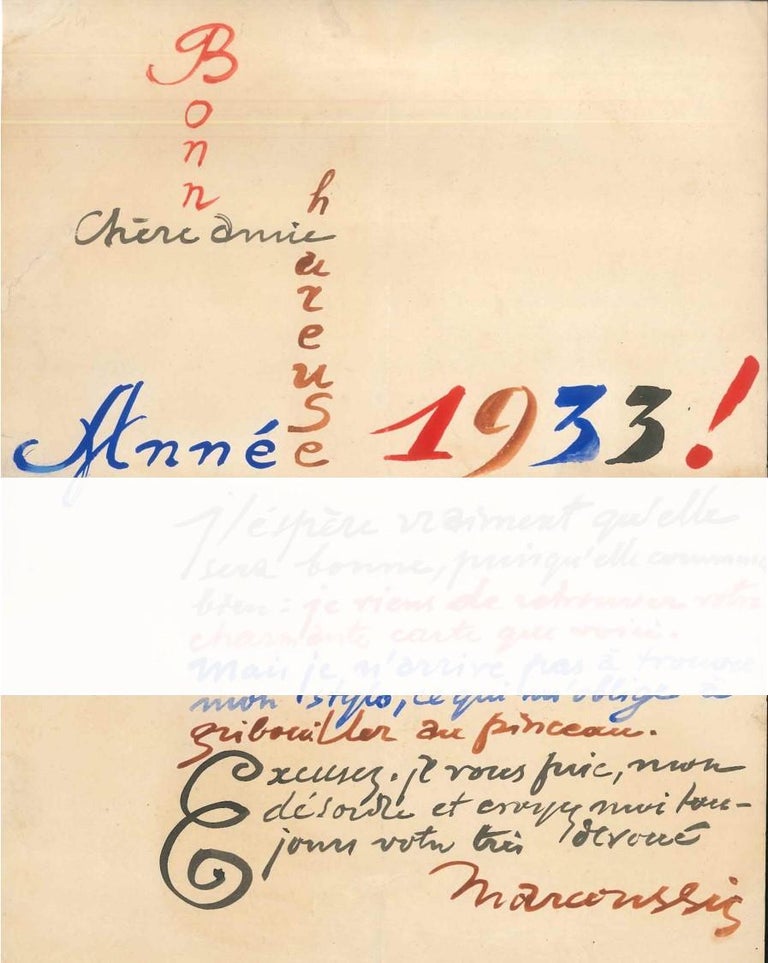 Bonn
Chère amie
heureuse
Année 1933!
J'éspère vraiment qu'elle
sera bonne, puisqu'elle commence
bien: je viens de retrouver votre
charmante carte que voici.
Mais je n'arrive pas à trouver
mon stylo, ce qui m'oblige à
gribouiller au pinceau.
Excusez, je vous prie, mon
désordre et croyez moi tou-
jours votre très dévoué
Marcoussis